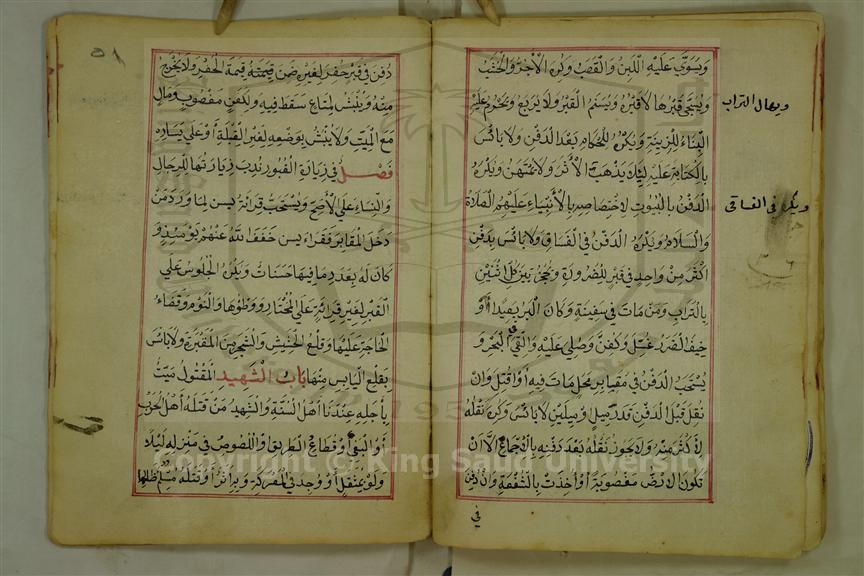 ويسوى عليه اللبن والقصب وكره الآجر والخشب
ويسجى قبرها لا قبره ويسنم القبر ولا يربع ويحرم عليه
البناء للزينة ويكره للاحكام بعد الدفن ولا باس
بالكتابة عليه لئلا يذهب الأثر ولا يمتهن ويكره
الدفن بالبيوت لاختصاصه بالأنبياء عليهم الصلاة
والسلام ويكره الدفن في الفساقي ولا باس بدفن
اكثر من واحد في قبر للضرورة ويحجز بين كل اثنين
بالتراب ومن مات في سفينة وكان البر بعيدا أو
خيف الضرر غسل وكفن وصلي عليه والقي في البحر و
يستحب الدفن في مقبابر محل مات فيه أو قتل وان
نقل قبل الدفن قدر ميل او ميلين لا باس وكره نقله
لأكثر منه ولا يجوز نقله بعد دفنه بالإجماع الا ان
تكون الارض مغصوبة أو أخذت بالشفعة وان دفن
في
ويهال التراب
ويكره في الفساقى
٥١
دفن في قبر حفر لغيره ضمن قيمته قيمة الحفر ولا يخرج
منه وينبش لمتاع سقط فيه ولكفن مغصوب ومال
مع الميت ولا ينبش بوضعه لغير القبلة أو على يساره
فصل في زيارة القبور ندب زيارتها للرجال
والنساء على الأصح ويستحب قراءة يس لما ورد من
دخل المقابر فقراء يس خفف الله عنهم يومئذ و
كان له بعدد ما فيها حسنات ويكره الجلوس على
القبر لغير قراءة على المختار ووطؤها والنوم وقضاء
الحاجة عليها وقلع الحشيش والشجر من المقبرة ولا باس
بقلع اليابس منها باب الشهيد المقتول ميت
بأجله عندنا أهل السنة والشهيد من قتله أهل الحرب
أو البغي أو قطاع الطريق أو اللصوص في منزله ليلا
ولو بمثقل أو وجد في المعركة وبه اثر أو قتله مسلم ظلما
Copyright © King Saud University